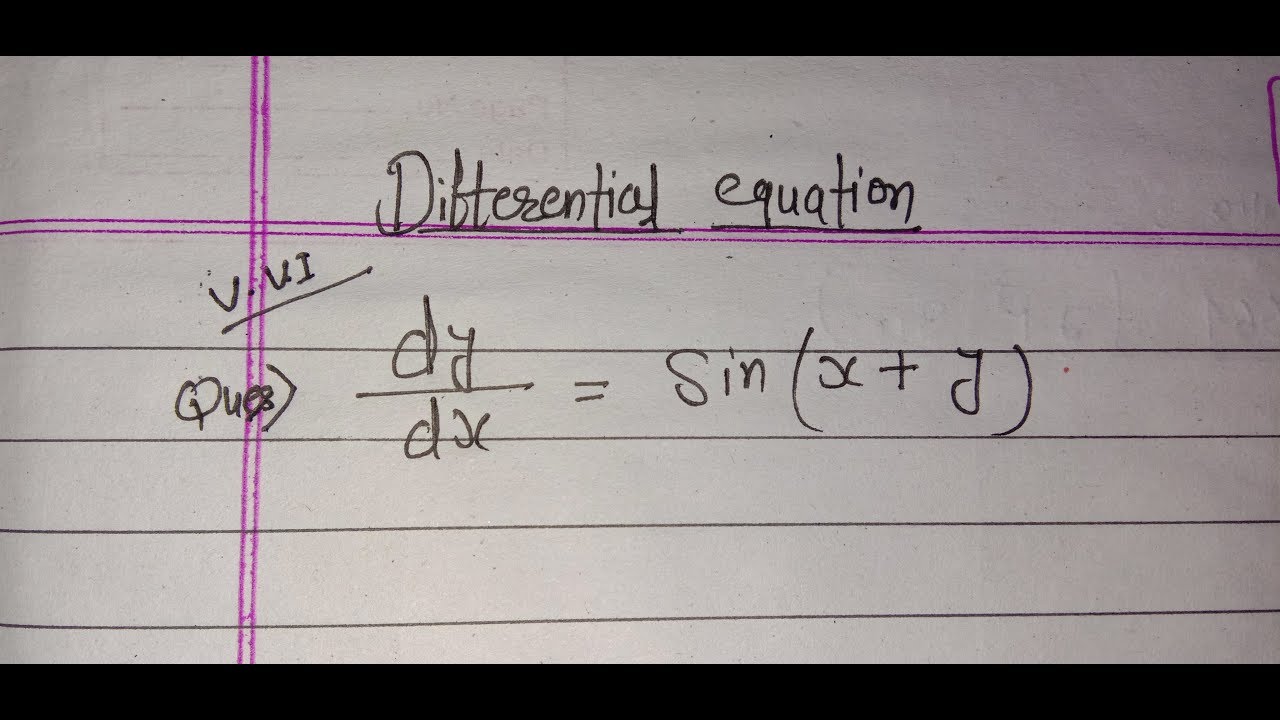 Differential equation
V.V.I
Ques) dy/dx = Sin(x + y)